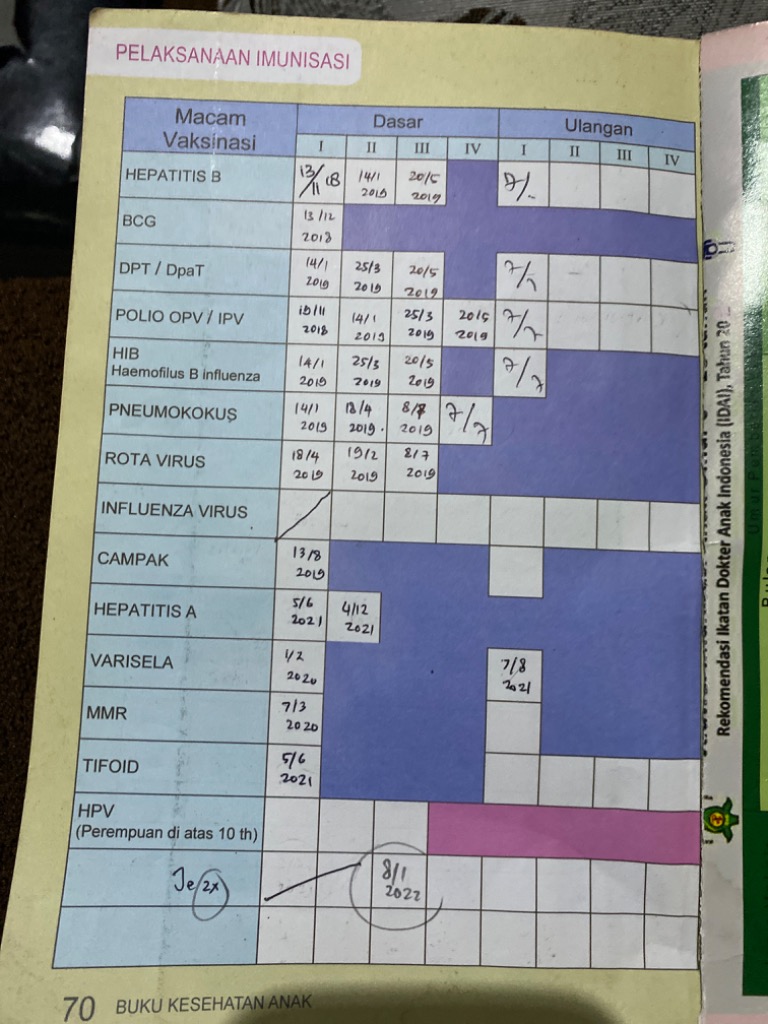 PELAKSANAAN IMUNISASI
Macam Vaksinasi Dasar Ulangan
I II III IV I II III IV
HEPATITIS B 13/11 18 14/1 2019 20/5 2019 7/-
BCG 13/12 2018
DPT / DpaT 14/1 2019 25/3 2019 20/5 2019 7/7
POLIO OPV / IPV 2018 14/1 2019 25/3 2019 20/5 2019 7/7
HIB
Haemofilus B influenza 14/1 2019 25/3 2019 20/5 2019 7/7
PNEUMOKOKUS 14/1 2019 18/4 2019. 8/7 2019 7/7
ROTA VIRUS 18/4 2019 19/2 2019 8/7 2019
INFLUENZA VIRUS
CAMPAK 13/8 2019
HEPATITIS A 5/6 2021 4/12 2021
VARISELA 1/2 2020 7/8 2021
MMR 7/3 2020
TIFOID 5/6 2021
HPV
(Perempuan di atas 10 th)
Je 2x 8/1 2022
70 BUKU KESEHATAN ANAK
Rekomendasi Ikatan Dokter Anak Indonesia (IDAI), Tahun 20